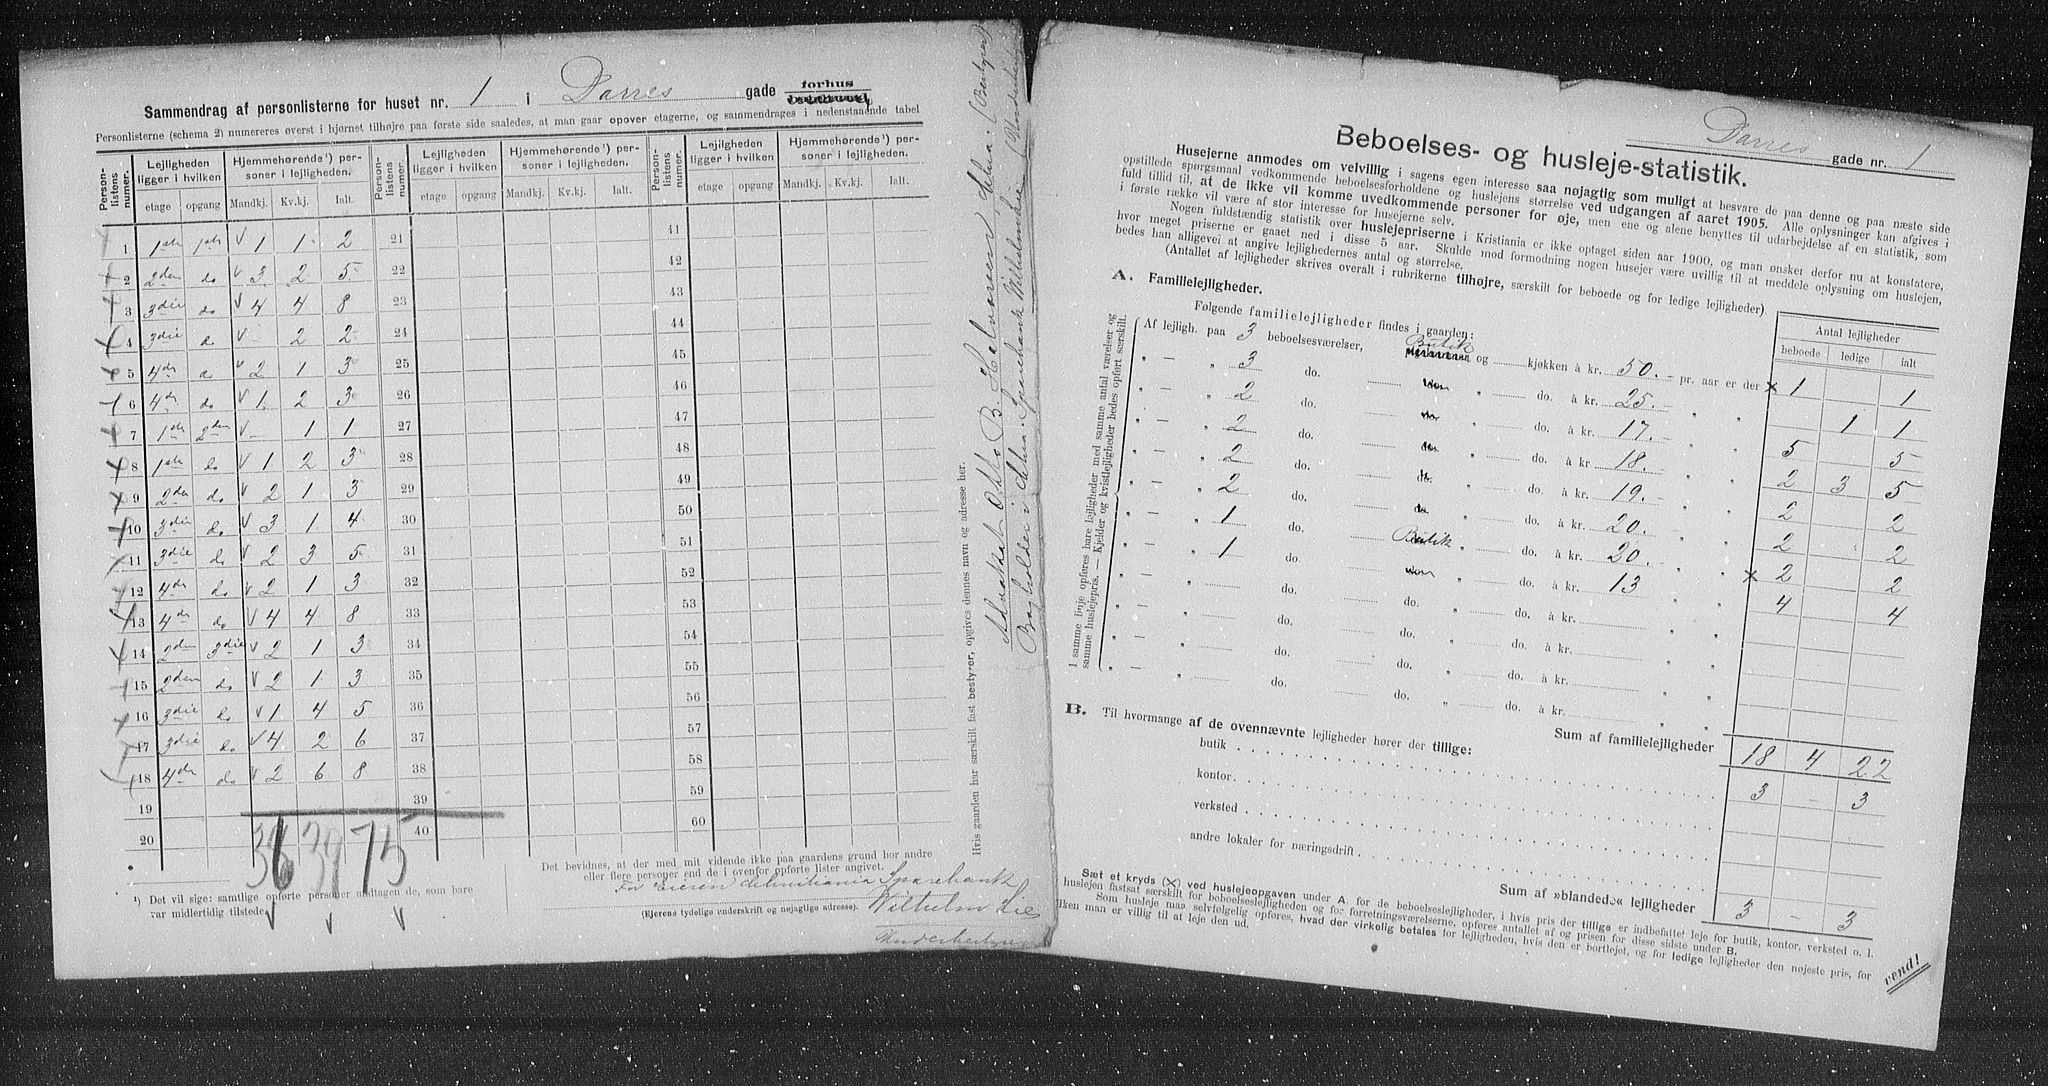 Sammendrag af personlisterne for huset nr. 1 i Darres gade forhus
Personlisterne (schema 2) numereres øverst i hjørnet tilhøjre paa første side saaledes, at man gaar opover etagerne, og sammendrages i nedenstaaende tabel
Person-listens numer. | Lejligheden ligger i hvilken etage | opgang | Hjemmehørende¹) personer i lejligheden. Mandkj. | Kv.kj. | Ialt.
1 1ste 1ste 1 1 2
2 2den do 3 2 5
3 3die do 4 4 8
4 3die do - 2 2
5 4de do 2 1 3
6 4de do 1 2 3
7 1ste 2den - 1 1
8 1ste do 1 2 3
9 2den do 2 1 3
10 3die do 3 1 4
11 3die do 2 3 5
12 4de do 2 1 3
13 4de do 4 4 8
14 2den 3die 2 1 3
15 2den do 2 1 3
16 3die do 1 4 5
17 3die do 4 2 6
18 4de do 2 6 8
19
20
36 39 75
Person-listens numer. | Lejligheden ligger i hvilken etage | opgang | Hjemmehørende¹) personer i lejligheden. Mandkj. | Kv.kj. | Ialt.
21
22
23
24
25
26
27
28
29
30
31
32
33
34
35
36
37
38
39
40
Person-listens numer. | Lejligheden ligger i hvilken etage | opgang | Hjemmehørende¹) personer i lejligheden. Mandkj. | Kv.kj. | Ialt.
41
42
43
44
45
46
47
48
49
50
51
52
53
54
55
56
57
58
59
60
¹) Det vil sige: samtlige opførte personer undtagen de, som bare
var midlertidig tilstede.
Det bevidnes, at der med mit vidende ikke paa gaardens grund bor andre
eller flere personer end de i ovenfor opførte lister angivet.
For Eieren Christiania Sparebank
(Ejerens tydelige underskrift og nøjagtige adresse).
Wilhelm Lies
Underbestyrer
Hvis gaarden har særskilt fast bestyrer, opgives dennes navn og adresse her.
Advokat Otto B. Halvorsen, Chra. (Bestyrer)
Bogholder i Chra. Sparebank Wilhelm Lie (Underbestyrer)
Darres gade nr. 1
Beboelses- og husleje-statistik.
Husejerne anmodes om velvillig i sagens egen interesse saa nøjagtig som muligt at besvare de paa denne og paa næste side
opstillede spørgsmaal vedkommende beboelsesforholdene og huslejens størrelse ved udgangen af aaret 1905. Alle oplysninger kan afgives i
fuld tillid til, at de ikke vil komme uvedkommende personer for øje, men ene og alene benyttes til udarbejdelse af en statistik, som
i første række vil være af stor interesse for husejerne selv.
Nogen fuldstændig statistik over huslejepriserne i Kristiania er ikke optaget siden aar 1900, og man ønsker derfor nu at konstatere,
hvor meget priserne er gaaet ned i disse 5 aar. Skulde mod formodning nogen husejer være uvillig til at meddele oplysning om huslejen,
bedes han alligevel at angive lejlighedernes antal og størrelse.
(Antallet af lejligheder skrives overalt i rubrikerne tilhøjre, særskilt for beboede og for ledige lejligheder)
A. Familielejligheder.
Følgende familielejligheder findes i gaarden:
Antal lejligheder
beboede | ledige | ialt
I samme linje opføres bare lejligheder med samme antal værelser og
samme huslejepris. — Kjelder og kvistlejligheder bedes opført særskilt.
Af lejligh. paa 3 beboelsesværelser, Butik og kjøkken à kr. 50.- pr. aar er der × 1 1
„ — „ 3 do. „ do. à kr. 25.- „ „ 1 1
„ — „ 2 do. „ do. à kr. 17.- „ „ 5 5
„ — „ 2 do. „ do. à kr. 18.- „ „ 2 3 5
„ — „ 2 do. „ do. à kr. 19.- „ „ 2 2
„ — „ 2 do. do „ do. à kr. 20.- „ „ 2 2
„ — „ 1 do. Butik „ do. à kr. 20.- „ „ × 2 2
„ — „ 1 do. „ do. à kr. 13 „ „ 4 4
„ — „ do. do. „ do. à kr. „ „
„ — „ do. do. „ do. à kr. „ „
„ — „ do. do. „ do. à kr. „ „
„ — „ do. do. „ do. à kr. „ „
Sum af familielejligheder 18 4 22
B. Til hvormange af de ovennævnte lejligheder hører der tillige:
butik 3 - 3
kontor
verksted
andre lokaler for næringsdrift
Sum af »blandede« lejligheder 3 - 3
Sæt et kryds (×) ved huslejeopgaven under A. for de beboelseslejligheder, i hvis pris der tillige er indbefattet leje for butik, kontor, verksted o. l.
huslejen fastsat særskilt for beboelseslejligheden og for forretningsværelserne, opføres antallet af og prisen for disse sidste under B.
Som husleje maa selvfølgelig opføres, hvad der virkelig betales for lejligheden, hvis den er bortlejet, og for ledige lejligheder den nøjeste pris, for
ilken man er villig til at leje den ud.
vend!